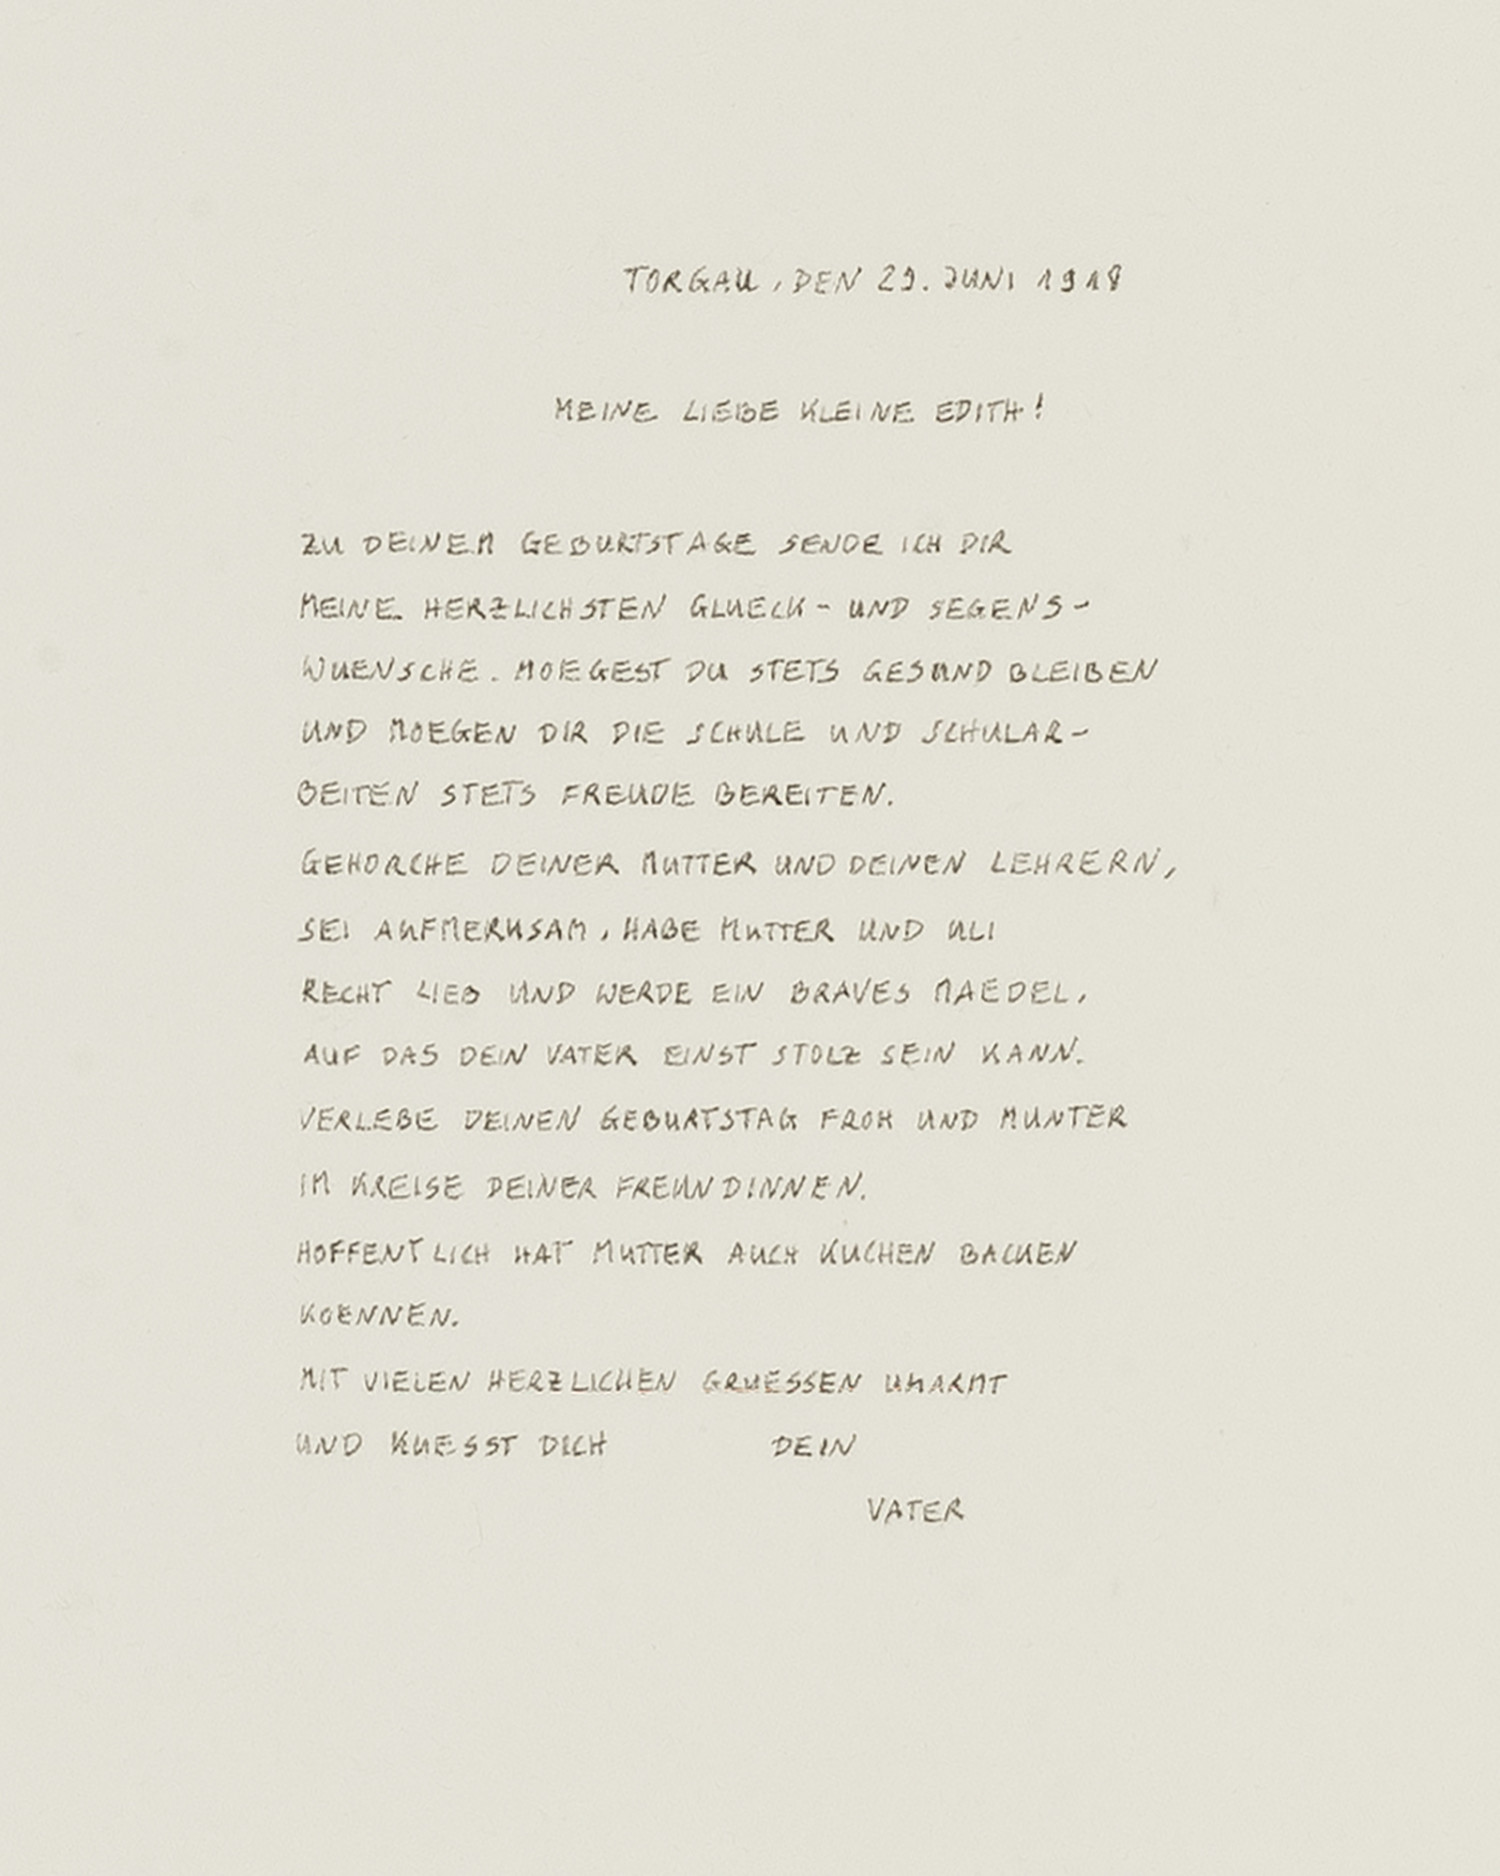 TORGAU, DEN 29. JUNI 1918
MEINE LIEBE KLEINE EDITH!
ZU DEINEM GEBURTSTAGE SENDE ICH DIR
MEINE HERZLICHSTEN GLUECK- UND SEGENS-
WUENSCHE. MOEGEST DU STETS GESUND BLEIBEN
UND MOEGEN DIR DIE SCHULE UND SCHULAR-
BEITEN STETS FREUDE BEREITEN.
GEHORCHE DEINER MUTTER UND DEINEN LEHRERN,
SEI AUFMERKSAM, HABE MUTTER UND ULI
RECHT LIEB UND WERDE EIN BRAVES MAEDEL,
AUF DAS DEIN VATER EINST STOLZ SEIN KANN.
VERLEBE DEINEN GEBURTSTAG FROH UND MUNTER
IM KREISE DEINER FREUNDINNEN.
HOFFENTLICH HAT MUTTER AUCH KUCHEN BACKEN
KOENNEN.
MIT VIELEN HERZLICHEN GRUESSEN UMARMT
UND KUESST DICH DEIN
VATER